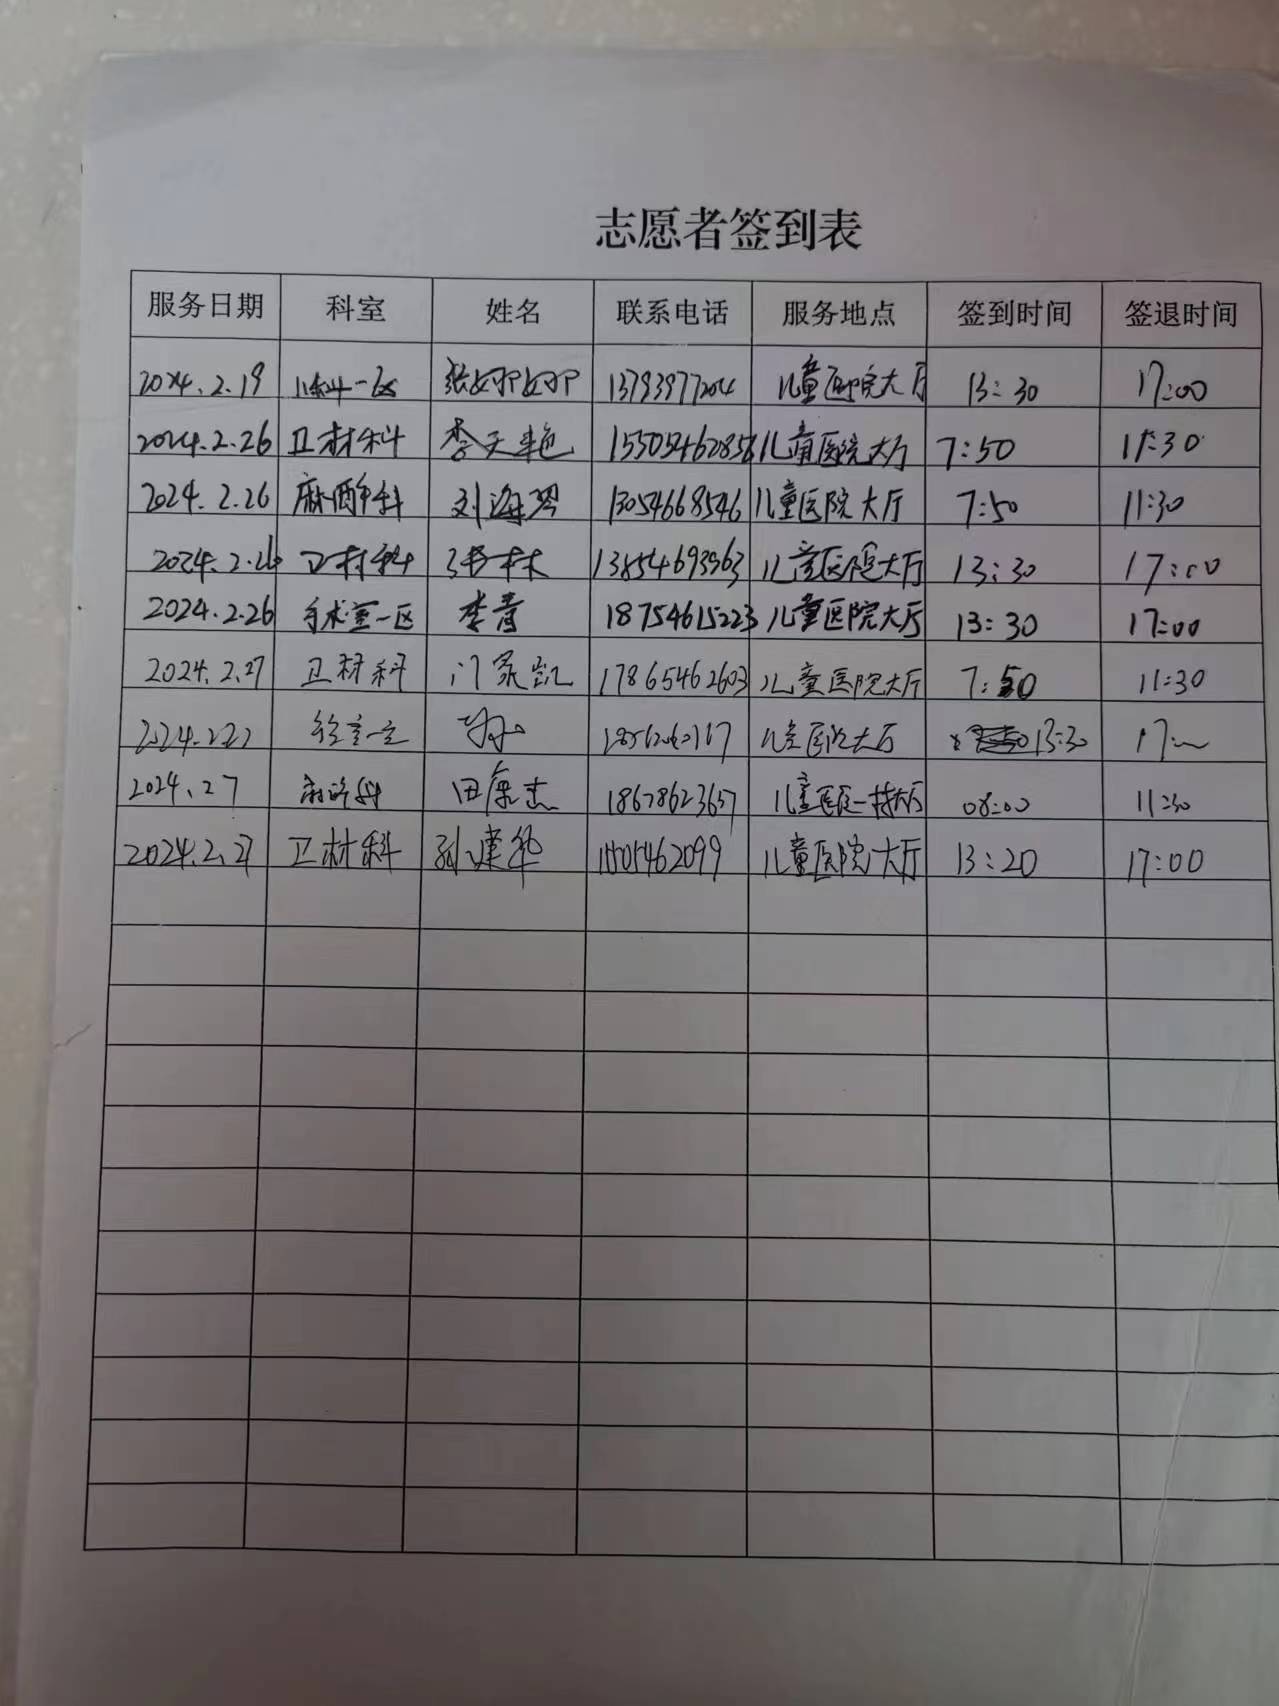 志愿者签到表
服务日期 科室 姓名 联系电话 服务地点 签到时间 签退时间
2024.2.19 儿科一区 张婷婷 儿童医院大厅 13:30 17:00
2024.2.26 卫材科 李天艳 儿童医院大厅 7:50 11:30
2024.2.26 麻醉科 刘海琴 13054668546 儿童医院大厅 7:50 11:30
2024.2.26 卫材科 张林 儿童医院大厅 13:30 17:00
2024.2.26 手术室一区 李青 18754615223 儿童医院大厅 13:30 17:00
2024.2.27 卫材科 门家凯 17865462603 儿童医院大厅 7:50 11:30
2024.2.27 儿童医院大厅 13:30
2024.27 田康杰 18678623657 08:00 11:30
2024.2.27 卫材科 孙建华 儿童医院大厅 13:20 17:00